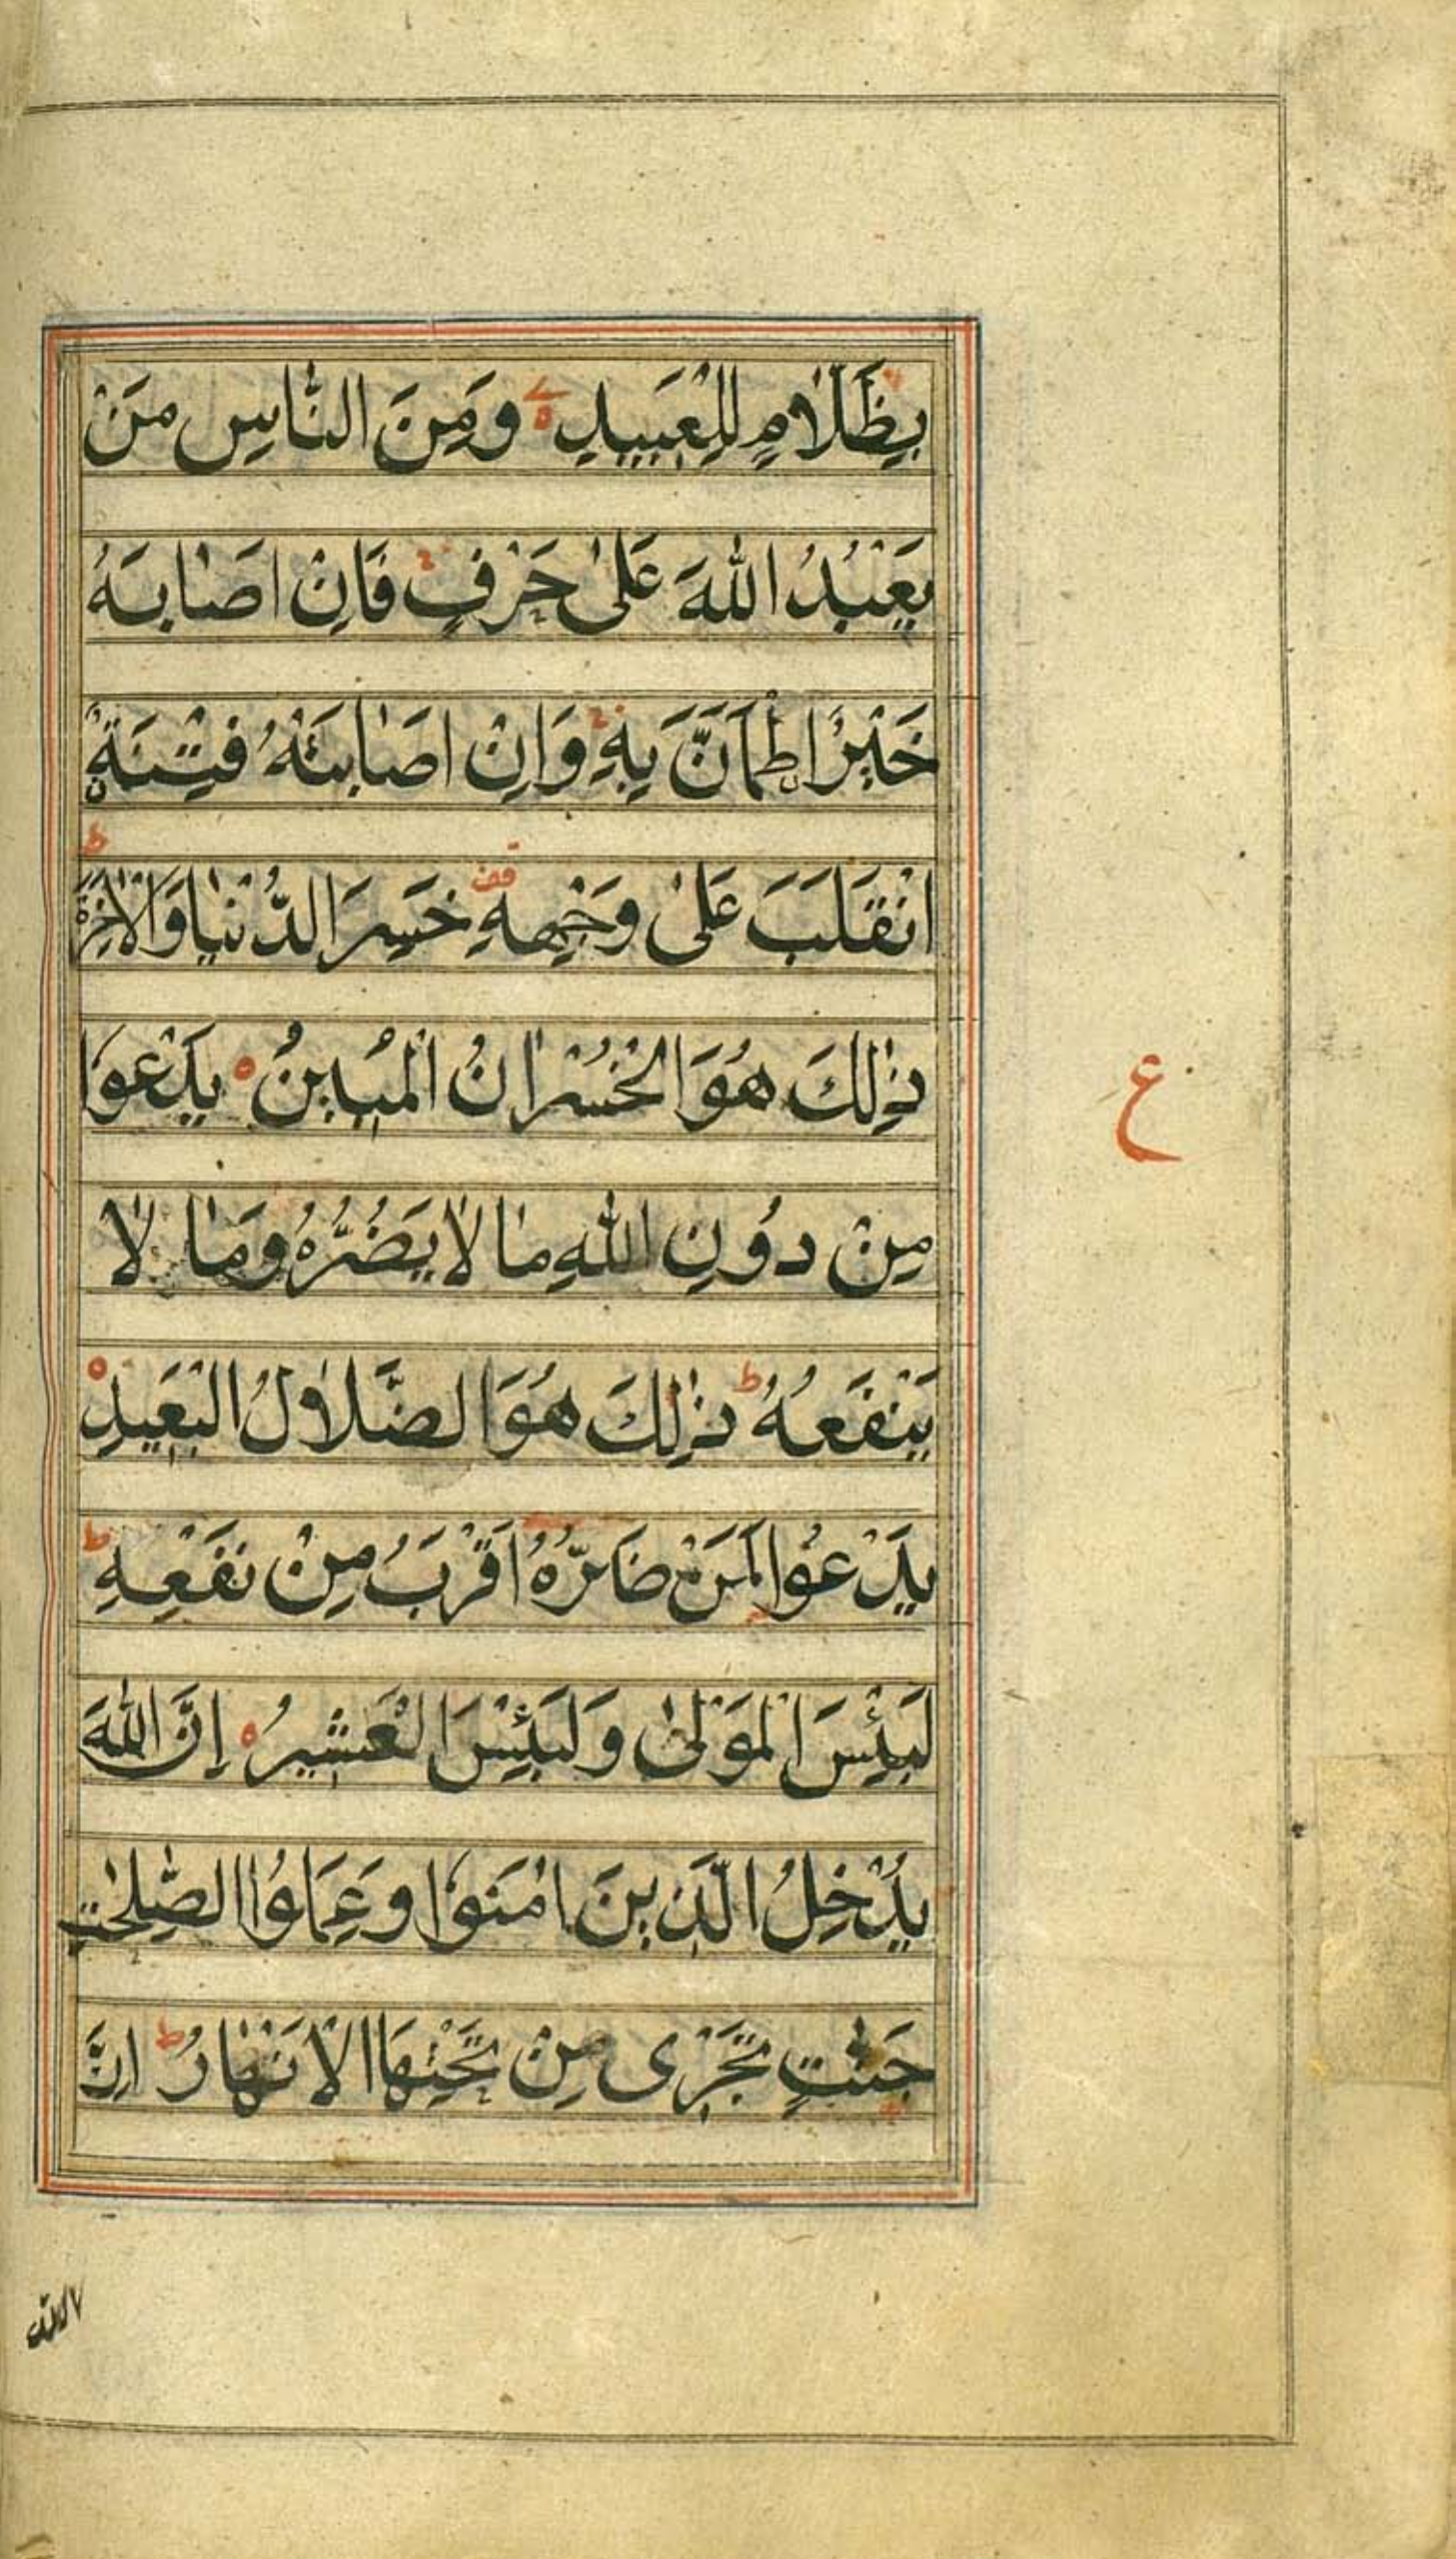 بِظَلَّامٍ لِلْعَبِيدِ ۝ وَمِنَ النَّاسِ مَنْ
يَعْبُدُ اللّٰهَ عَلٰى حَرْفٍ فَاِنْ اَصَابَهُ
خَيْرُ ۨاطْمَاَنَّ بِهٖ وَاِنْ اَصَابَتْهُ فِتْنَةُ ۨ
انْقَلَبَ عَلٰى وَجْهِهٖ قف خَسِرَ الدُّنْيَا وَالْاٰخِرَةَ ط
ذٰلِكَ هُوَ الْخُسْرَانُ الْمُبِينُ ۝ يَدْعُوا
ع
مِنْ دُونِ اللّٰهِ مَا لَا يَضُرُّهُ وَمَا لَا
يَنْفَعُهُ ط ذٰلِكَ هُوَ الضَّلَالُ الْبَعِيدُ ۝
يَدْعُوا لَمَنْ ضَرُّهُ اَقْرَبُ مِنْ نَفْعِهٖ ط
لَبِئْسَ الْمَوْلٰى وَلَبِئْسَ الْعَشِيرُ ۝ اِنَّ اللّٰهَ
يُدْخِلُ الَّذِينَ اٰمَنُوا وَعَمِلُوا الصّٰلِحٰتِ
جَنّٰتٍ تَجْرِى مِنْ تَحْتِهَا الْاَنْهَارُ ط اِنَّ
الله